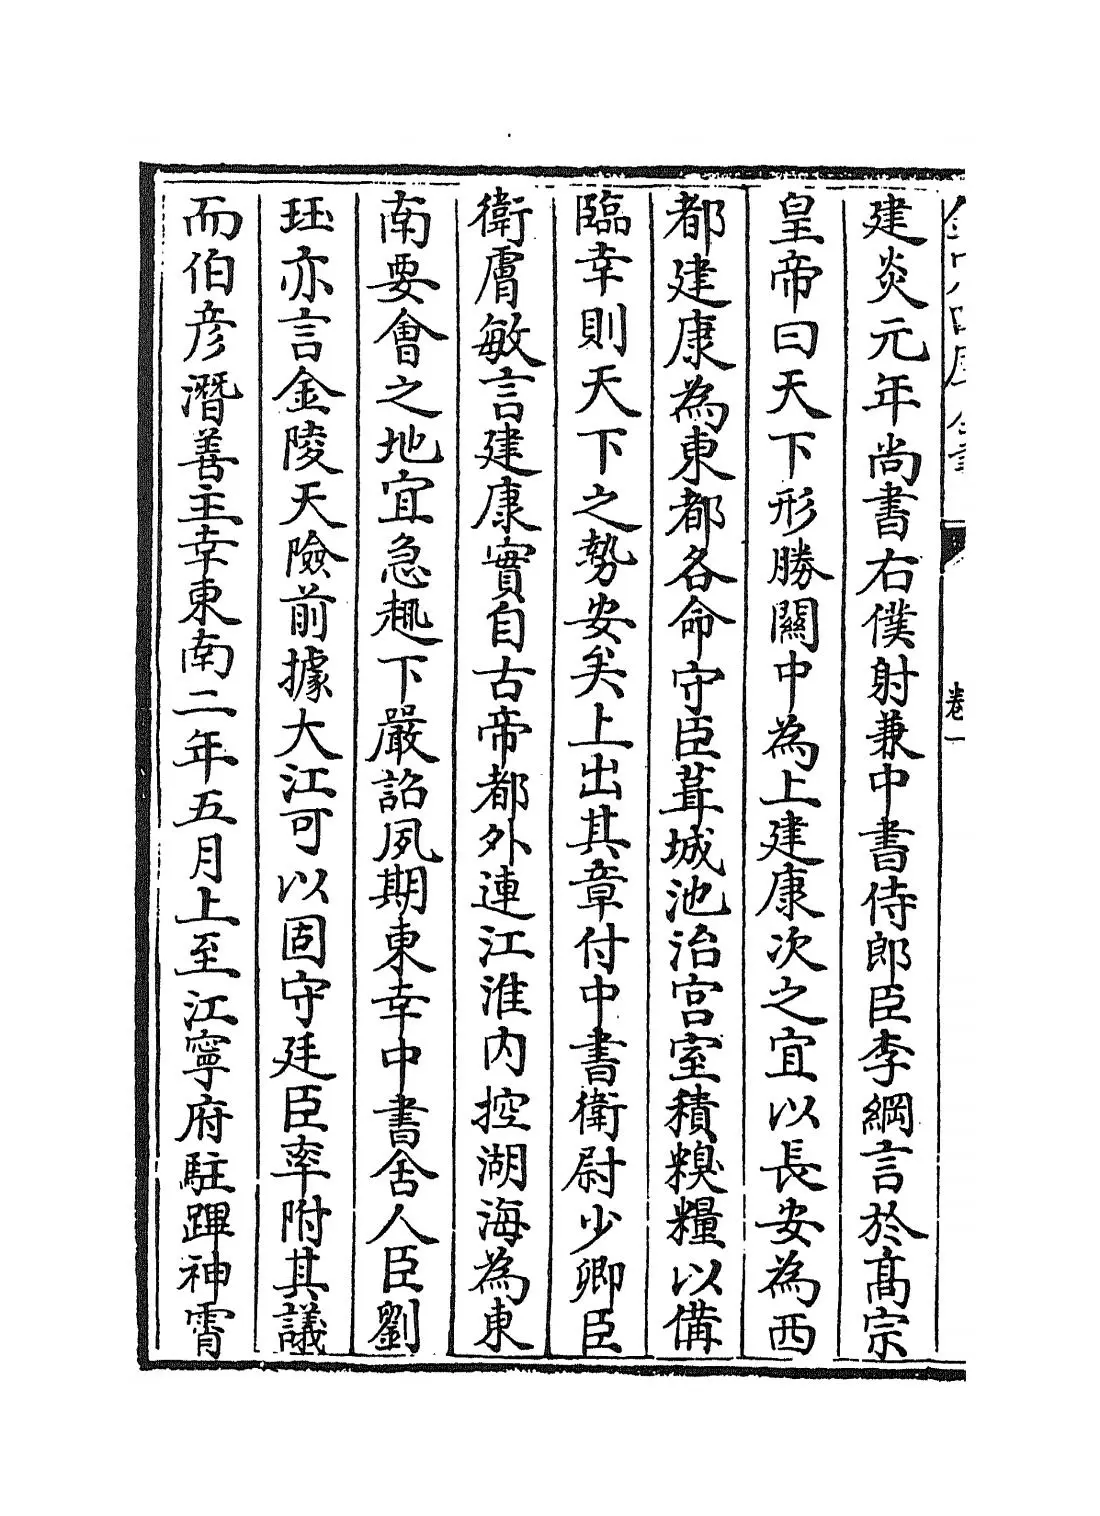 建炎元年尚書右僕射兼中書侍郎臣李綱言於髙宗
皇帝曰天下形勝關中為上建康次之宜以長安為西
都建康為東都各命守臣葺城池治宫室積糗糧以備
臨幸則天下之勢安矣上出其章付中書衛尉少卿臣
衛膚敏言建康實自古帝都外連江淮内控湖海為東
南要會之地宜急趣下嚴詔夙期東幸中書舍人臣劉
珏亦言金陵天險前據大江可以固守廷臣率附其議
而伯彦潛善主幸東南二年五月上至江寧府駐蹕神霄
卷一